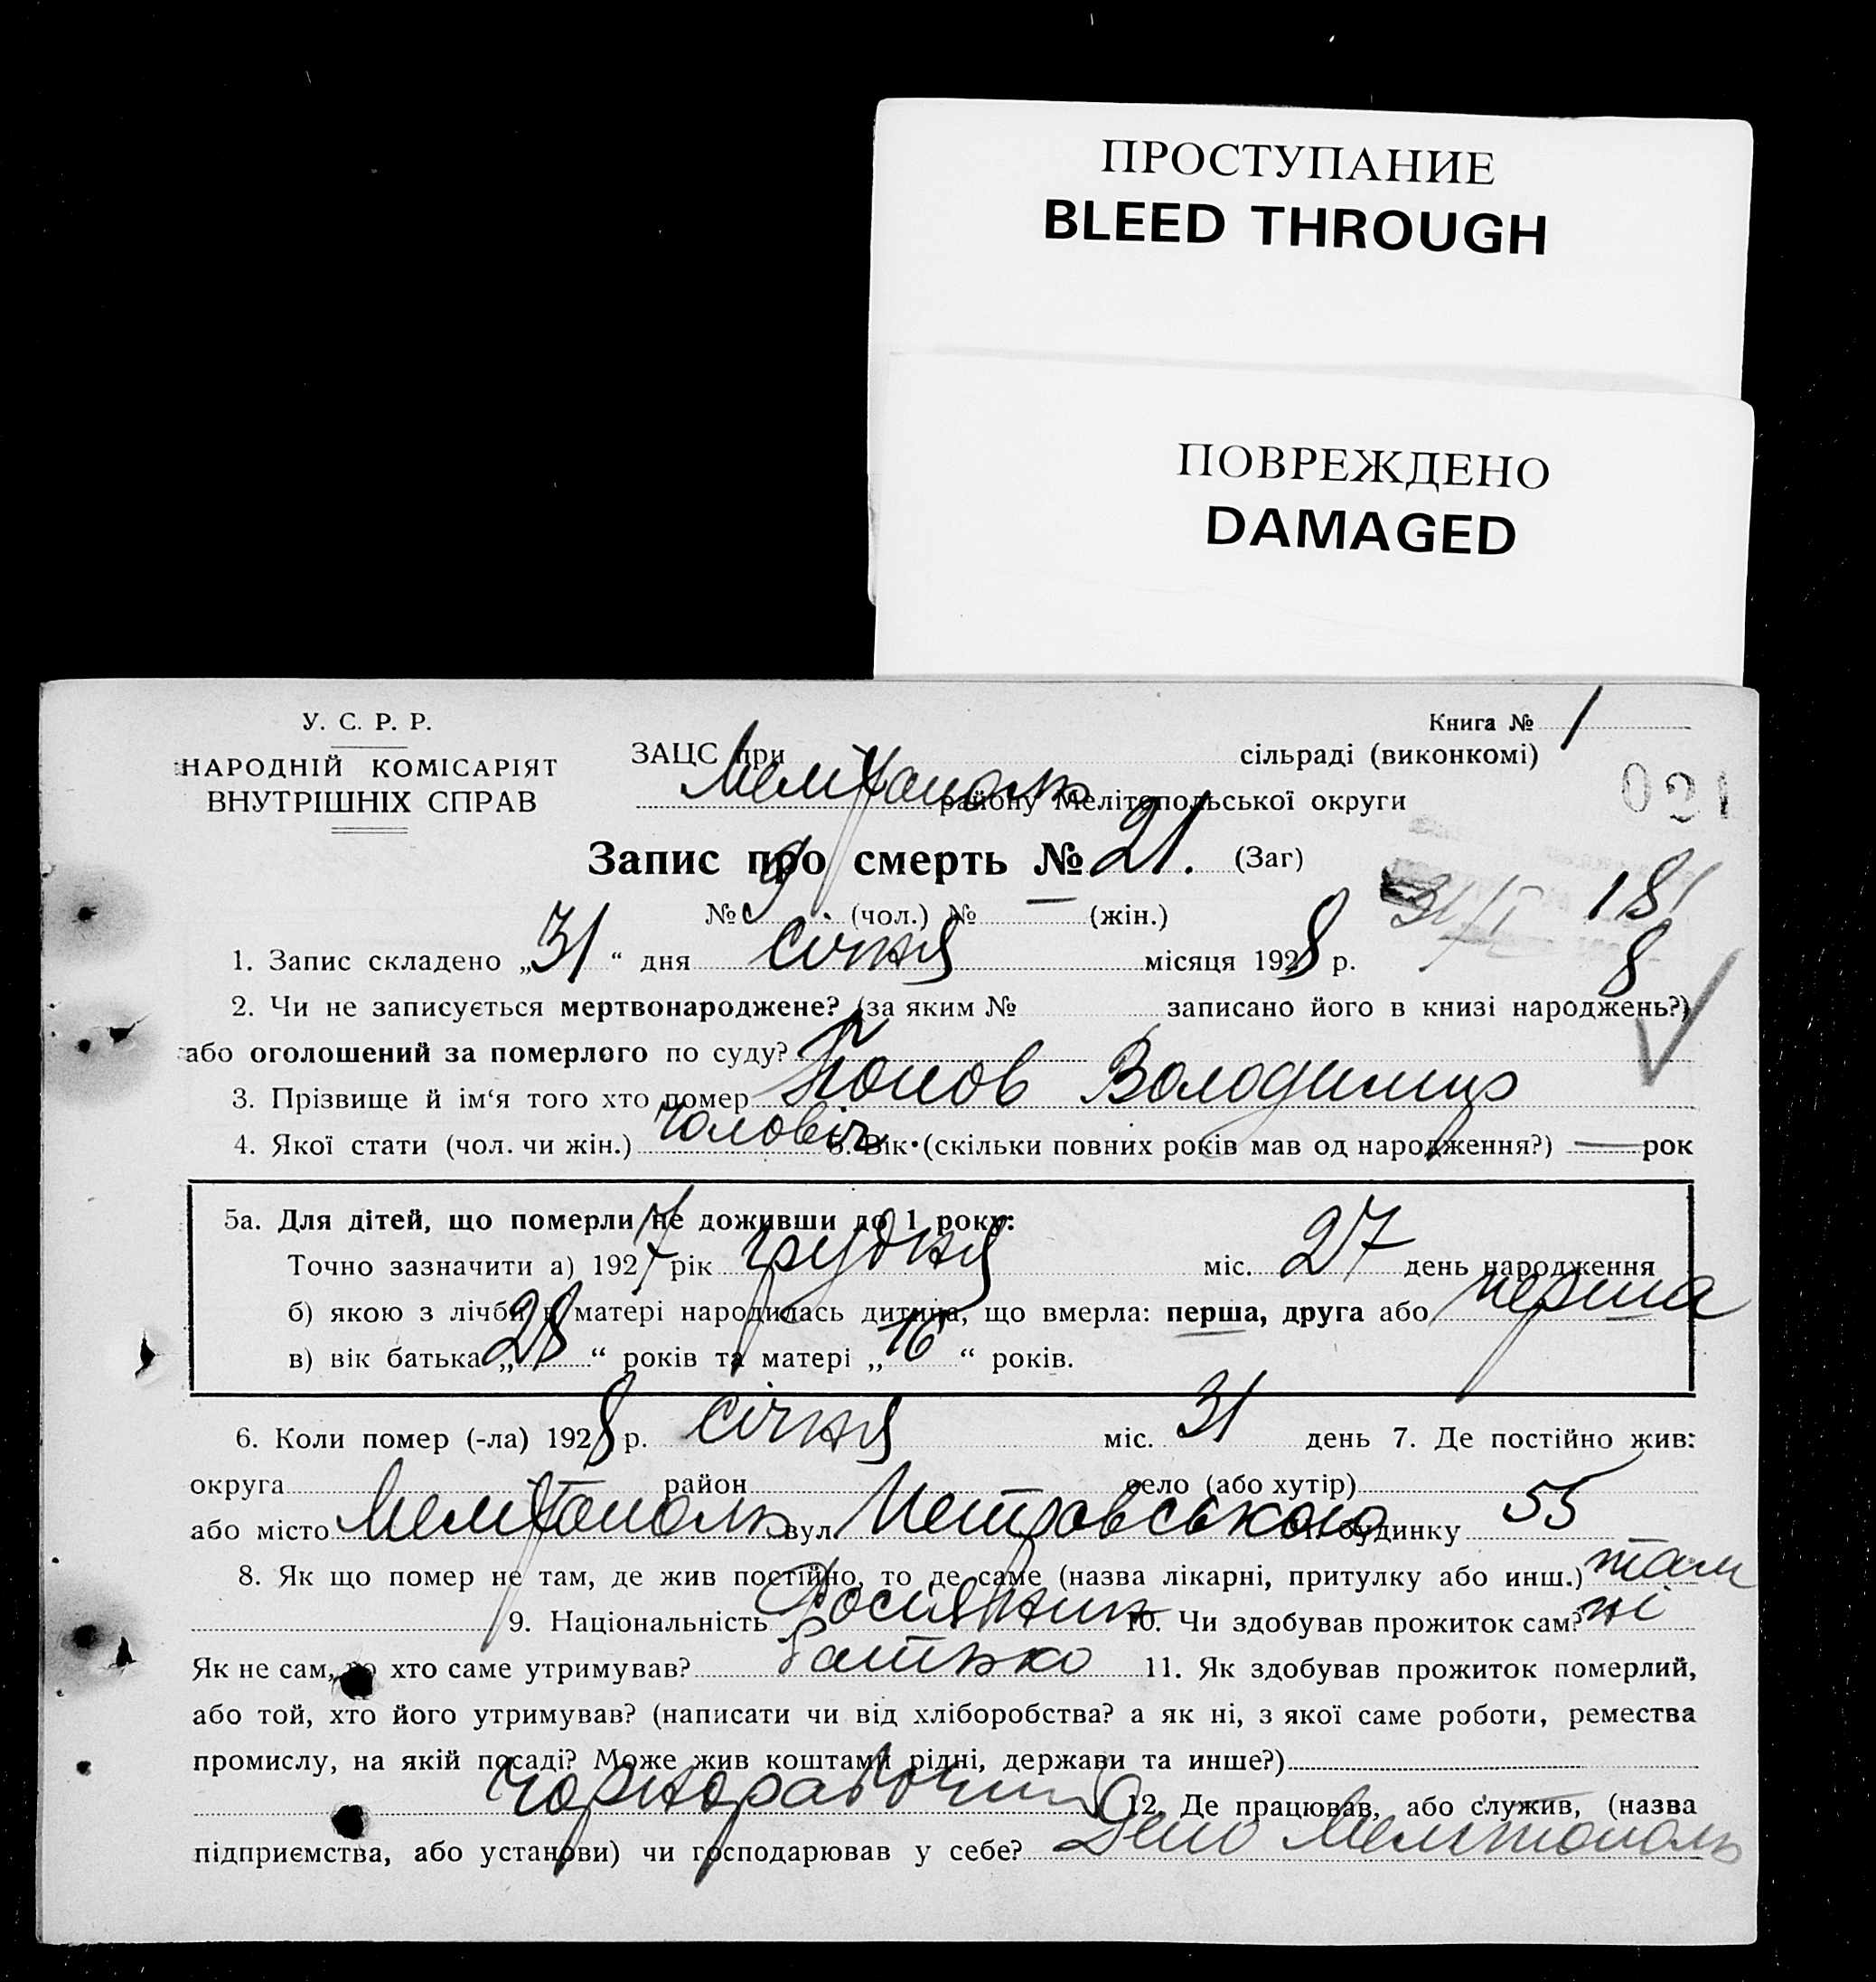 ПРОСТУПАНИЕ
BLEED THROUGH
ПОВРЕЖДЕНО
DAMAGED
У. С. Р. Р.
НАРОДНІЙ КОМІСАРІЯТ
ВНУТРІШНІХ СПРАВ
Книга № 1
ЗАЦС при Мелітополь сільраді (виконкомі)
району Мелітопольської округи
021
Запис про смерть № 21. (Заг)
№ 9 (чол.) № — (жін.)
31/I 18
1. Запис складено „31“ дня січня місяця 1928 р.
8
2. Чи не записується мертвонароджене? (за яким № записано його в книзі народжень?)
або оголошений за померлого по суду?
3. Прізвище й ім'я того хто помер Попов Володимир
4. Якої стати (чол. чи жін.) чоловіч 5. Вік (скільки повних років мав од народження?) — рок
5а. Для дітей, що померли не доживши до 1 року:
Точно зазначити а) 1927 рік грудня міс. 27 день народження
б) якою з лічби в матері народилась дитина, що вмерла: перша, друга або перша
в) вік батька „28“ років та матері „16“ років.
6. Коли помер (-ла) 1928 р. січня міс. 31 день 7. Де постійно жив:
округа район село (або хутір)
або місто Мелітополь вул. Петровського ч. будинку 55
8. Як що помер не там, де жив постійно, то де саме (назва лікарні, притулку або инш.) там
9. Національність Росіянин 10. Чи здобував прожиток сам? ні
Як не сам, то хто саме утримував? батько 11. Як здобував прожиток померлий,
або той, хто його утримував? (написати чи від хліборобства? а як ні, з якої саме роботи, ремества
промислу, на якій посаді? Може жив коштами рідні, держави та инше?)
чорнорабочий 12. Де працював, або служив, (назва
підприємства, або установи) чи господарював у себе? Депо Мелітополь